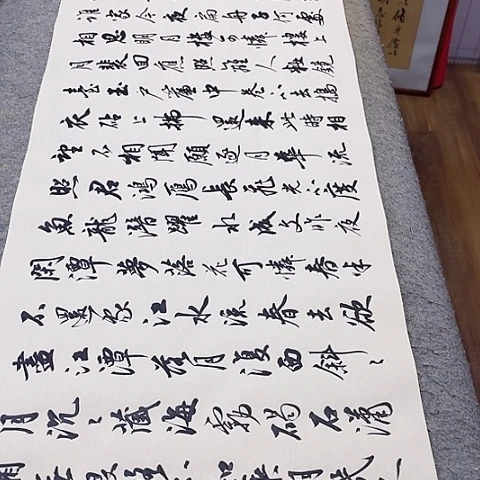 誰家今夜扁舟子何處
相思明月樓可憐樓上
月裴回應照離人妝鏡
臺玉户簾中卷不去搗
衣砧上拂還來此時相
望不相聞願逐月華流
照君鴻雁長飛光不度
魚龍潛躍水成文昨夜
閑潭夢落花可憐春半
不還家江水流春去欲
盡江潭落月復西斜〻
月沉〻藏海霧碣石瀟